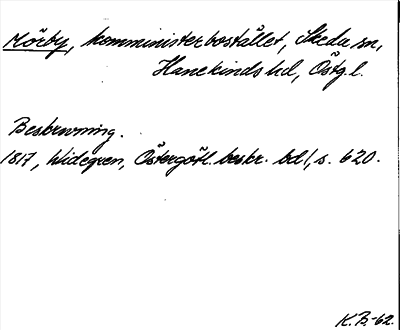 Mörby, komministerbostället, Skeda sn,
Hanekinds hd, Östg.l.
Beskrivning.
1817, Widegren, Östergötl. beskr. bd 1, s. 620.
K.B.-62.